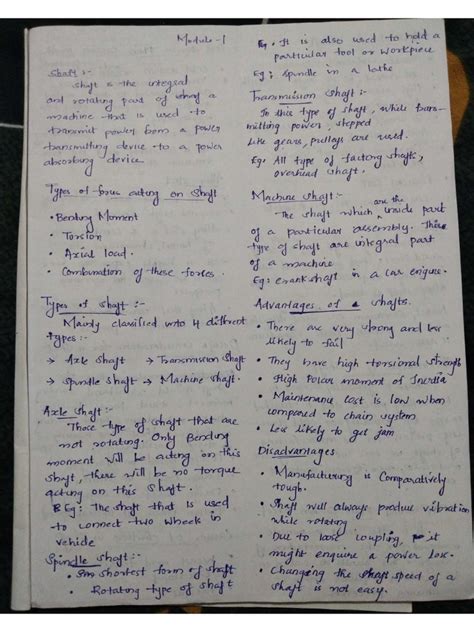 Module-1
Shaft :-
Shaft is the integral
and rotating part of a
machine that is used to
transmit power from a power
transmitting device to a power
absorbing device
Types of forces acting on Shaft
• Bending Moment
• Torsion
• Axial load.
• Combination of these forces.
Types of Shaft :-
Mainly classified into 4 different
types :-
→ Axle Shaft → Transmission Shaft
→ Spindle Shaft → Machine Shaft.
Axle Shaft :-
These type of shaft that are
not rotating. Only Bending
moment will be acting on this
shaft, there will be no torque
acting on this shaft.
Eg: The shaft that is used
to connect two wheels in
vehicle
Spindle Shaft :-
• Shortest form of Shaft
• Rotating type of Shaft
It is also used to hold a
particular tool or workpiece
Eg: Spindle in a lathe
Transmission Shaft :-
In this type of shaft, while trans-
mitting power, stepped
like gears, pulleys are used.
Eg: All type of factory shafts,
overhead shaft.
Machine Shaft :-
The shaft which are the inside part
of a particular assembly. These
type of shaft are integral part
of a machine
Eg: crankshaft in a car engine.
Advantages of shafts.
• There are very strong and less
likely to fail
• They have high torsional strength
• High Polar moment of Inertia
• Maintenance cost is low when
compared to chain system
• Less likely to get jam
Disadvantages
• Manufacturing is Comparatively
tough.
• Shaft will always produce vibration
while rotating
• Due to lose coupling, it
might enquire a power loss.
• Changing the speed of a
shaft is not easy.